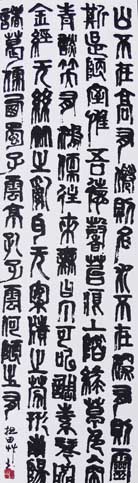 山不在高有僊則名水不在深有龍則靈
斯是陋室惟吾德馨苔痕上階綠草色入簾
青談笑有鴻儒往來無白丁可以調素琴閱
金經无絲竹之亂耳无案牘之勞形南陽
諸葛廬西蜀子雲亭孔子云何陋之有